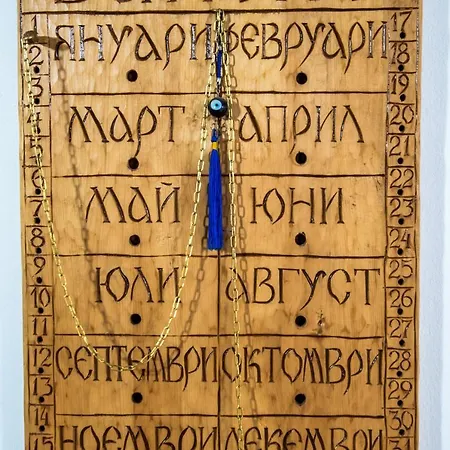 1 ЯНУАРИ ФЕВРУАРИ 17
2 18
3 19
4 МАРТ АПРИЛ 20
5 21
6 22
7 МАЙ ЮНИ 23
8 24
9 25
10 ЮЛИ АВГУСТ 26
11 27
12 СЕПТЕМВРИ ОКТОМВРИ 28
13 29
14 30
15 НОЕМВРИ ДЕКЕМВРИ 31